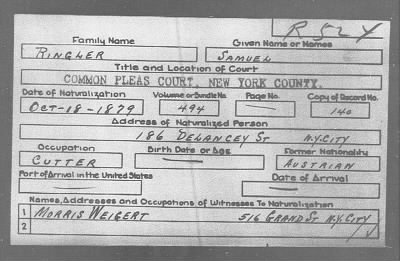 R 524
Family Name Given Name or Names
RINGLER SAMUEL
Title and Location of Court
COMMON PLEAS COURT, NEW YORK COUNTY.
Date of Naturalization Volume or Bundle No. Page No. Copy of Record No.
OCT-18-1879 494 — 140
Address of Naturalized Person
186 DELANCEY ST N.Y.CITY
Occupation Birth Date or Age Former Nationality
CUTTER — AUSTRIAN
Port of Arrival in the United States Date of Arrival
— —
Names, Addresses and Occupations of Witnesses To Naturalization
1 MORRIS WEIGERT 516 GRAND ST N.Y.CITY
2